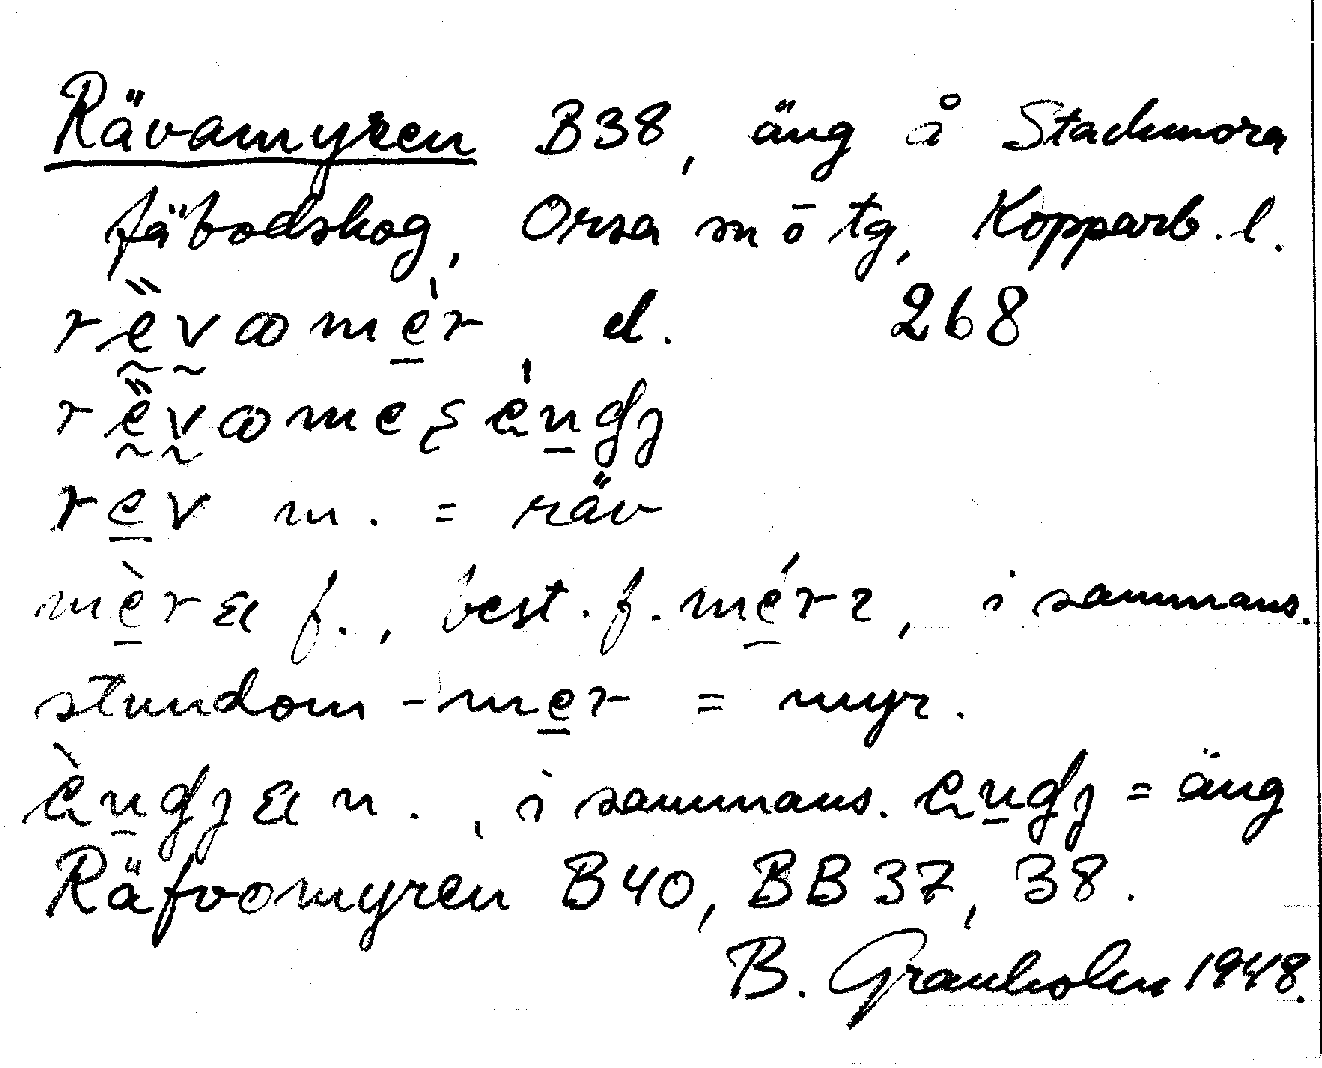 Rävamyren B38, äng å Stackmora
fäbodskog, Orsa sn ö tg, Kopparb. l.
rèvꝏmèr, el. 268
rèvꝏmeʂèngʒ
rev m. = räv
mèra f., best. f. mérɿ, i sammans.
stundom -mer = myr.
èngʒa n., i sammans. engʒ = äng
Räfvomyren B40, BB37, 38.
B. Granholm 1948.